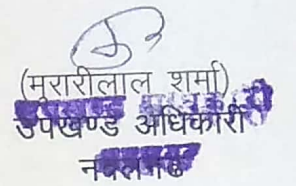 (मुरारीलाल शर्मा)
उपखण्ड अधिकारी
नवलगढ